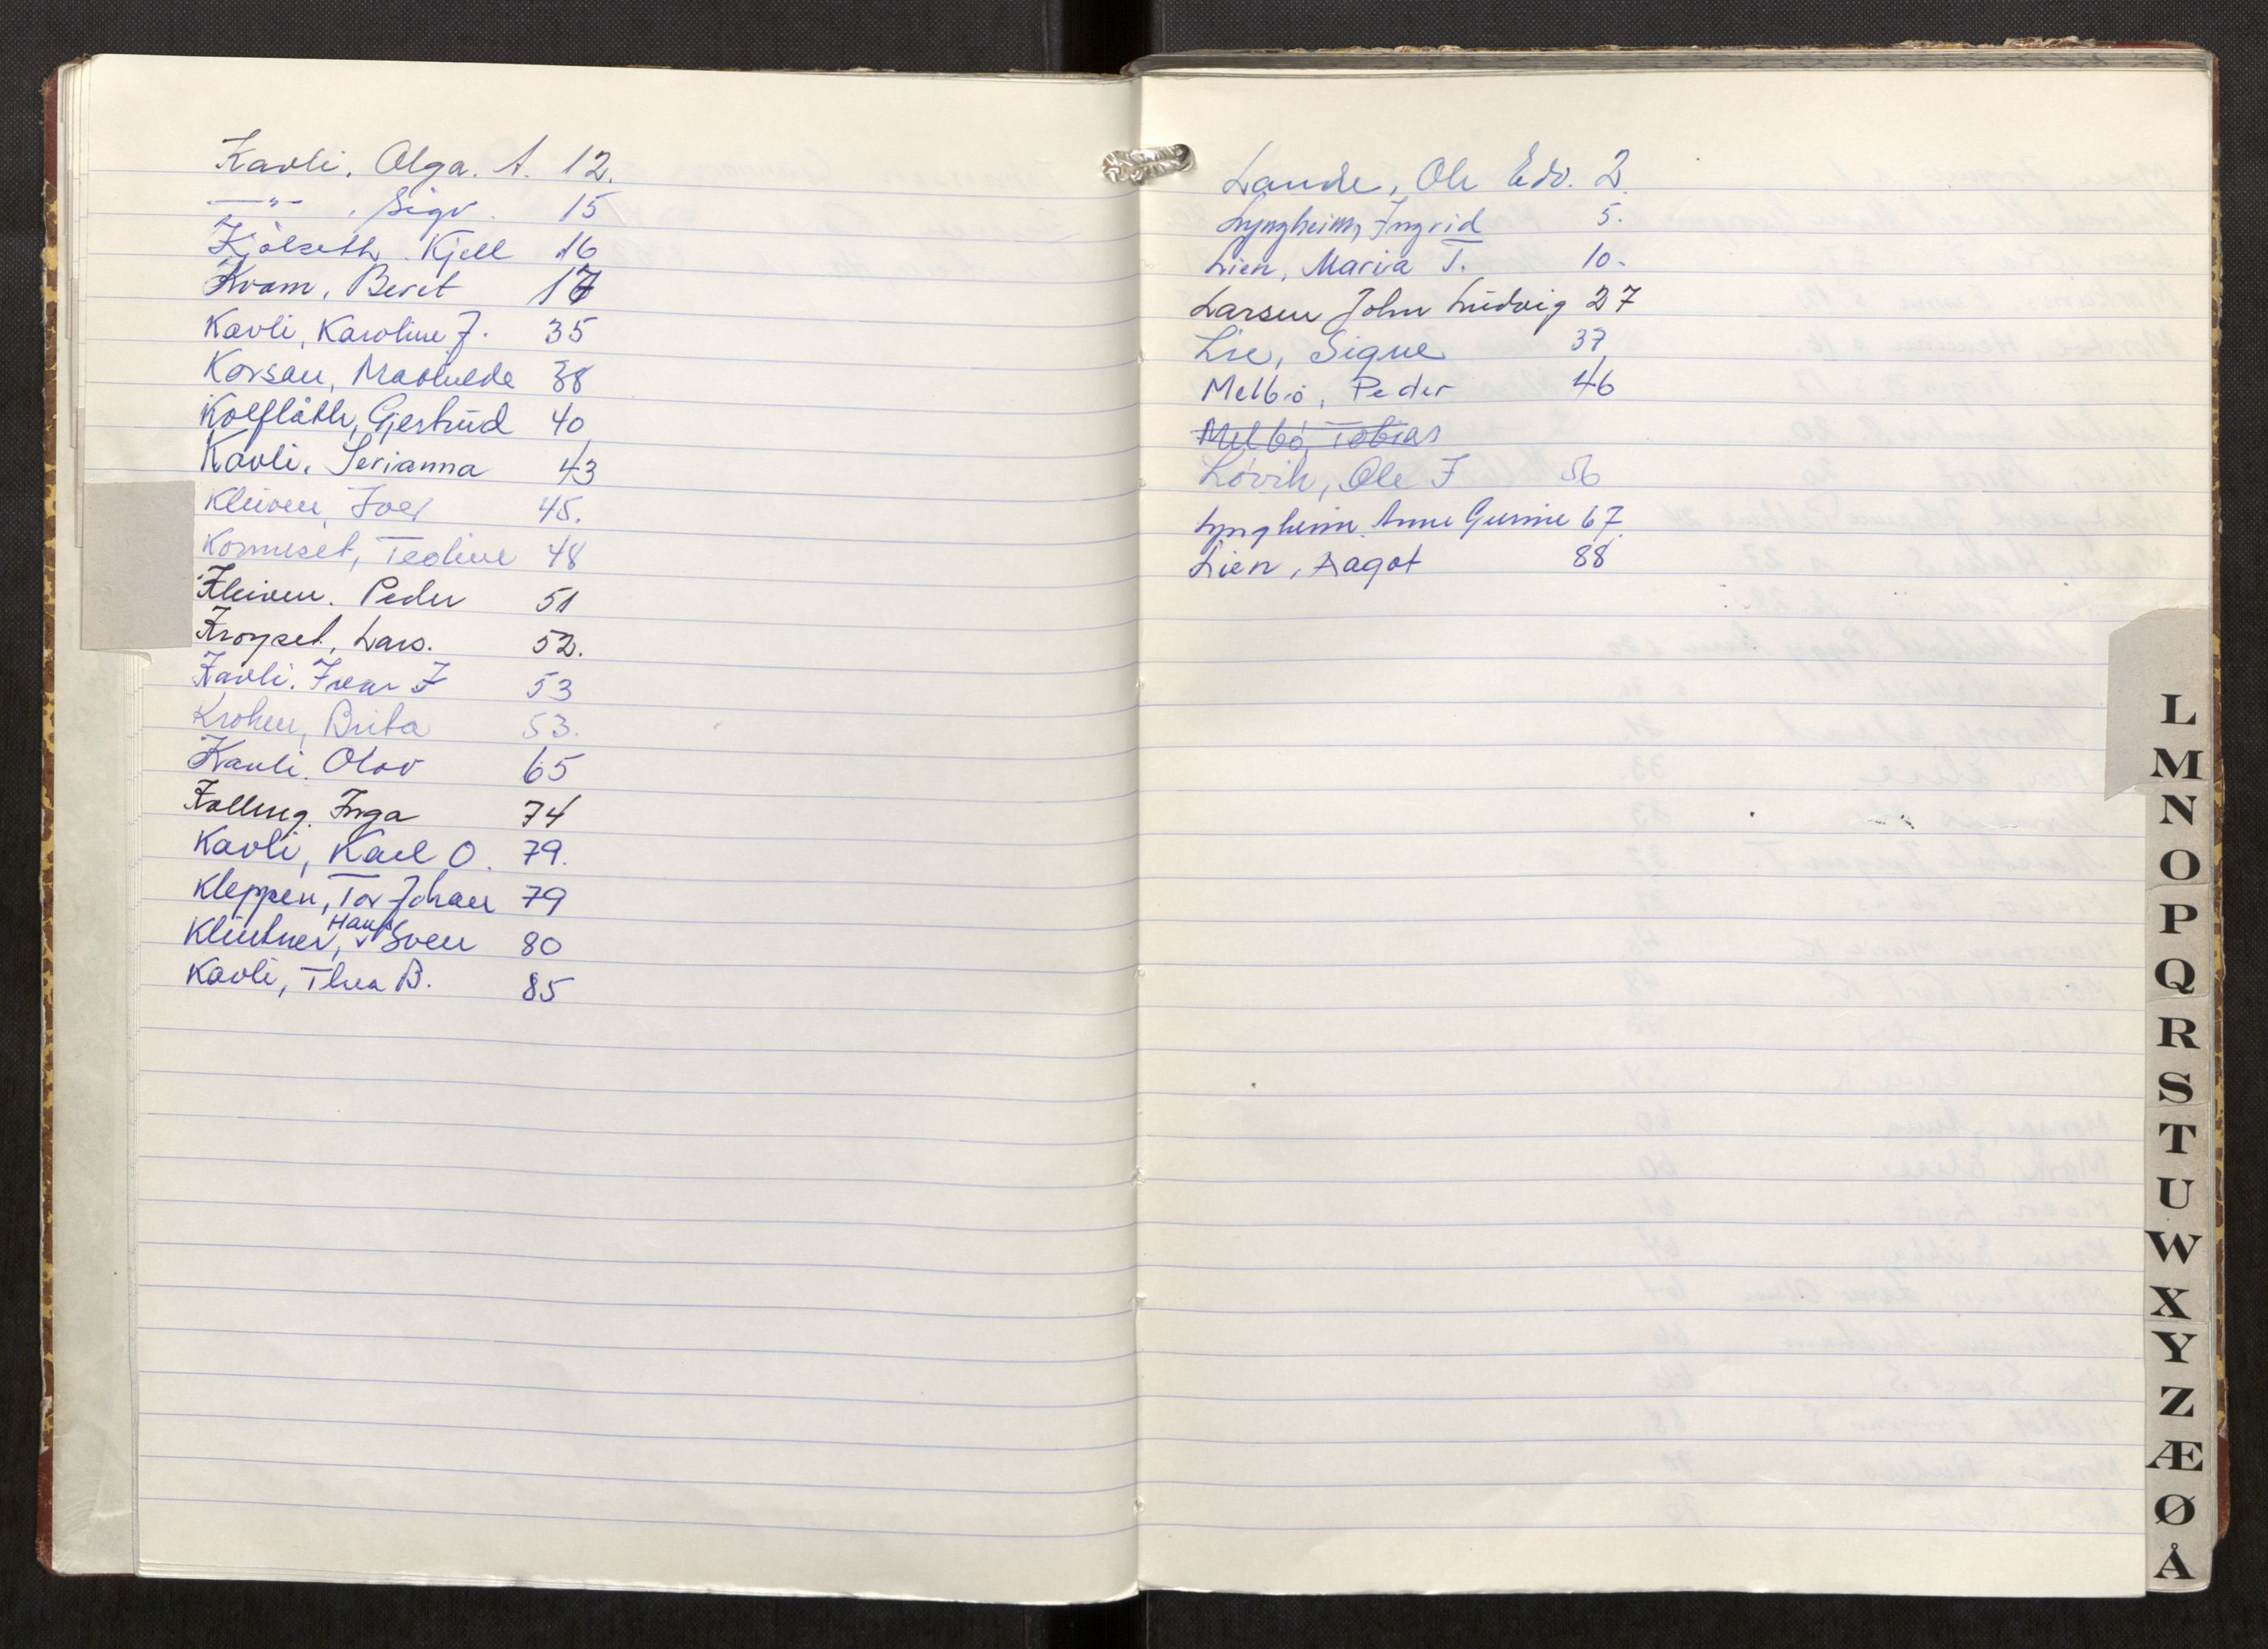 Kavli, Olga. A. 12.
—"— , Sigv. 15
Kjölseth, Kjell 16
Kvam, Beret 17
Kavli, Karoline J. 35
Korsan, Mathilde 38
Kolflåth, Gjertrud 40
Kavli, Serianna 43
Kleiven, Iver 45.
Kornset, Teoline 48
Kleiven. Peder 51
Kroyset, Lars. 52.
Kavli. Ivar J 53
Kroken, Brita 53.
Kavli. Olav 65
Kolling. Inga 74
Kavli, Karl O. 79.
Kleppen, Tor Johan 79
Klintner, Hans Sven 80
Kavli, Thea B. 85
Lande, Ole Edv. 2.
Lyngheim, Ingrid 5.
Lien, Maria T. 10.
Larsen John Ludvig 27
Lie, Signe 37
Melbö, Peder 46
Melbö, Tobias
Lövik, Ole J 56
Lyngheim. Anne Gurine 67.
Lien, Aagot 88
L
M
N
O
P
Q
R
S
T
U
W
X
Y
Z
Æ
Ø
Å